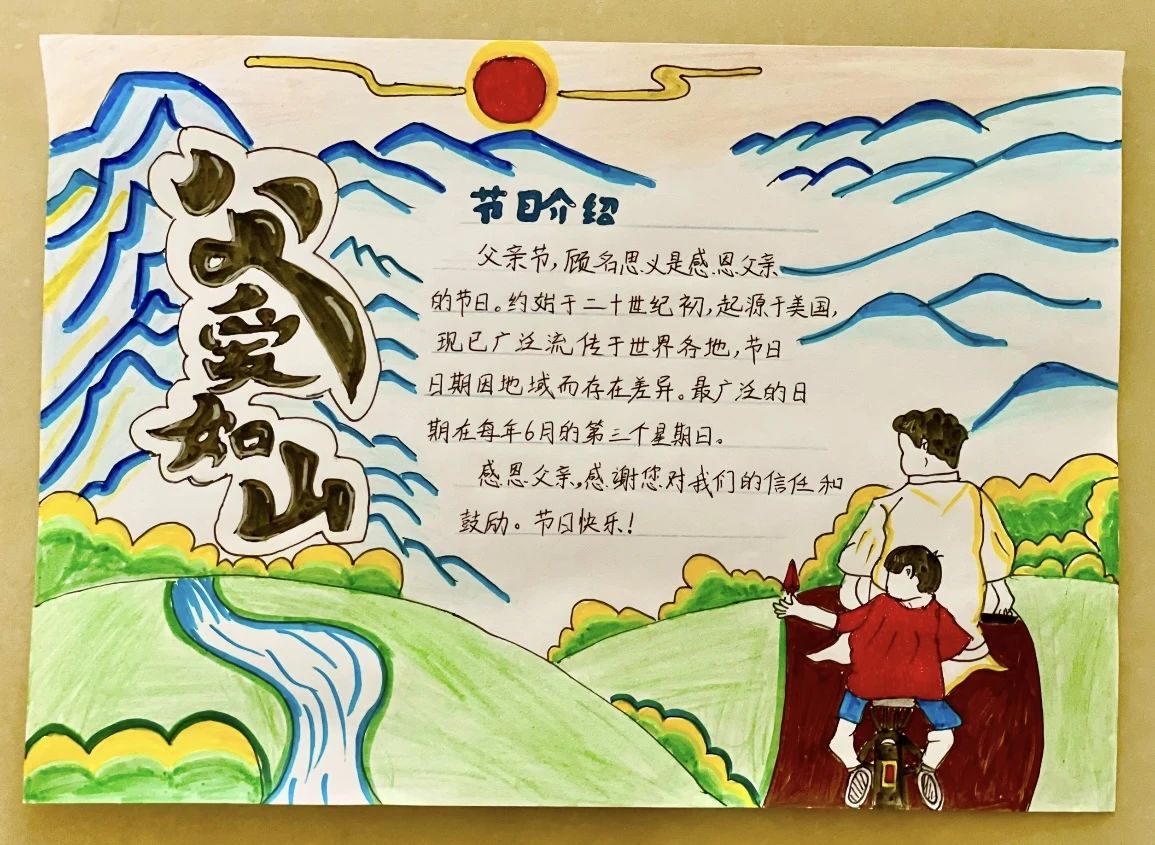 父爱如山
节日介绍
父亲节,顾名思义是感恩父亲
的节日。约始于二十世纪初,起源于美国,
现已广泛流传于世界各地,节日
日期因地域而存在差异。最广泛的日
期在每年6月的第三个星期日。
感恩父亲,感谢您对我们的信任和
鼓励。节日快乐!